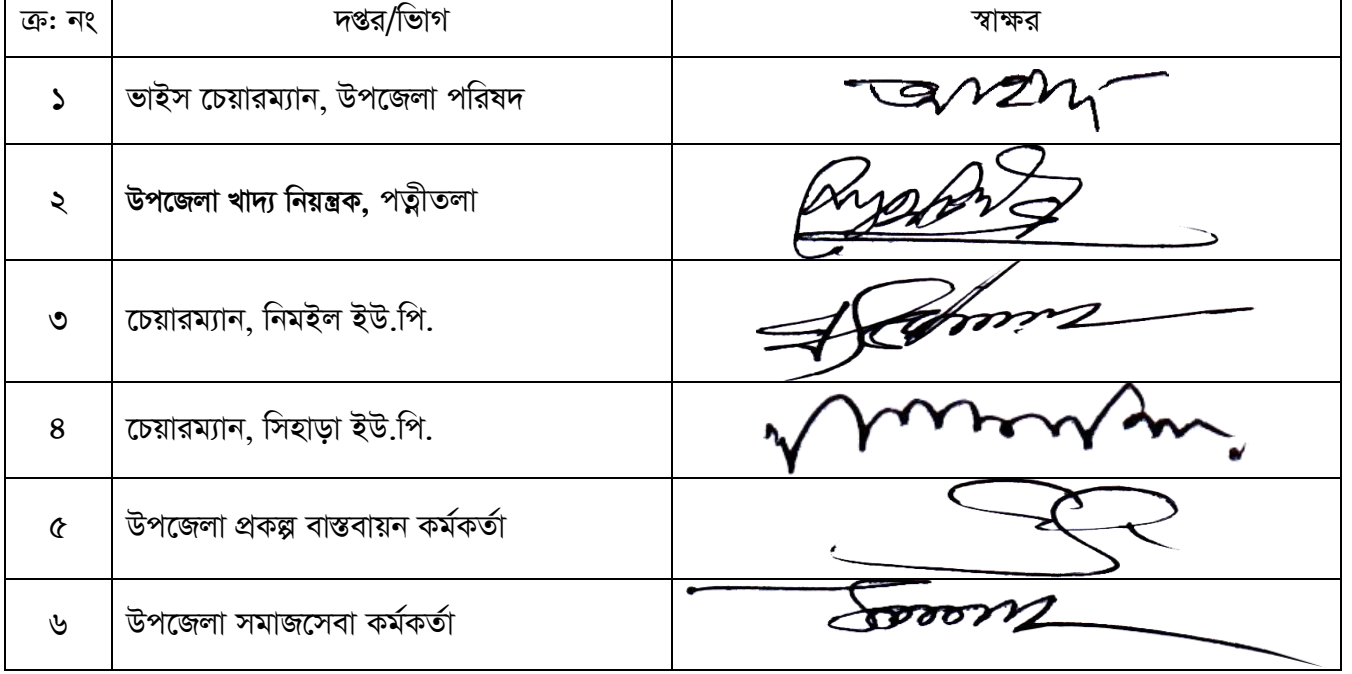 ক্র: নং দপ্তর/ভিাগ স্বাক্ষর
১ ভাইস চেয়ারম্যান, উপজেলা পরিষদ
২ উপজেলা খাদ্য নিয়ন্ত্রক, পত্নীতলা
৩ চেয়ারম্যান, নিমইল ইউ.পি.
৪ চেয়ারম্যান, সিহাড়া ইউ.পি.
৫ উপজেলা প্রকল্প বাস্তবায়ন কর্মকর্তা
৬ উপজেলা সমাজসেবা কর্মকর্তা